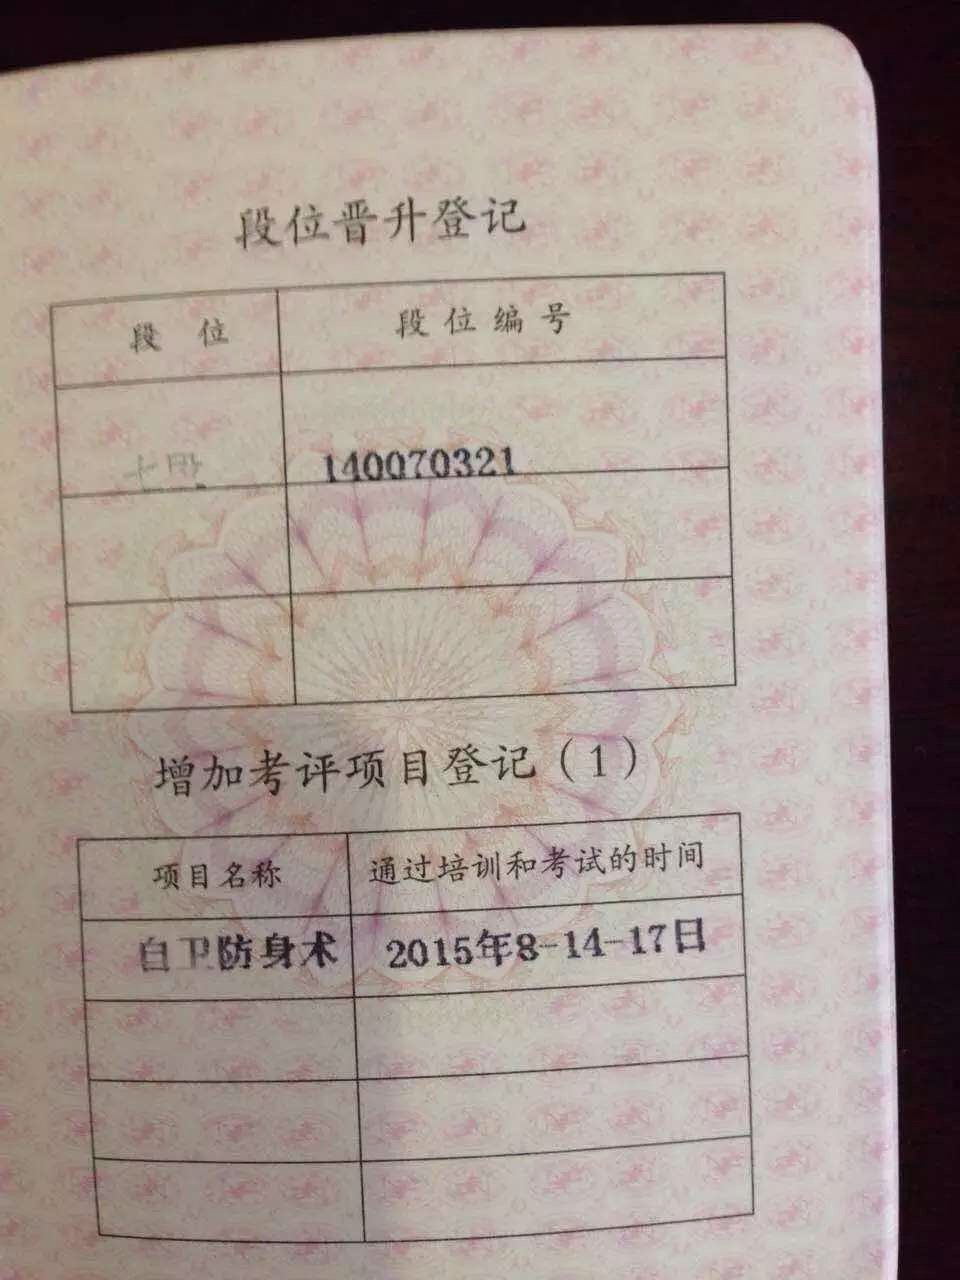 段位晋升登记
段 位 段位编号
七段 140070321
增加考评项目登记（1）
项目名称 通过培训和考试的时间
自卫防身术 2015年8-14-17日